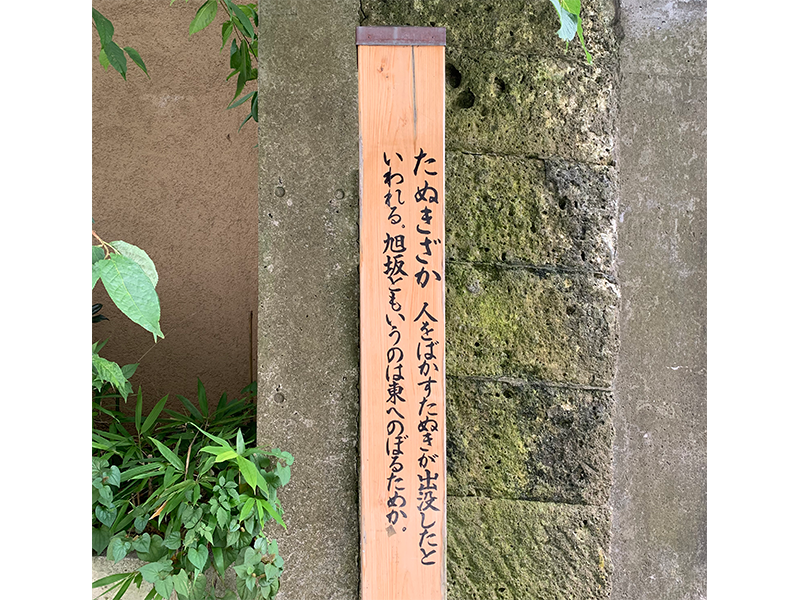 たぬきざか 人をばかすたぬきが出没したと
いわれる。旭坂ともいうのは東へのぼるためか。